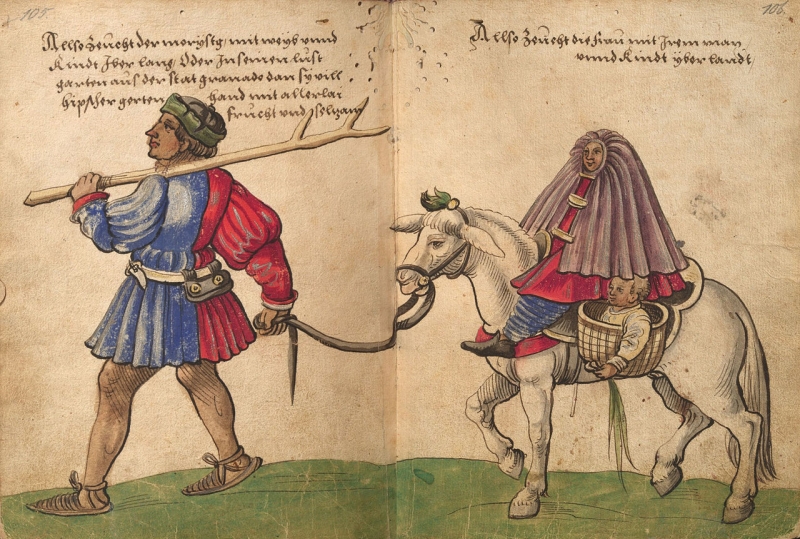 105.
Allso zeücht der morysÿg mit weÿb vnnd
Kindt Iber lanꝺ Oder In seinen lust
garten auß der stat granado dan sy vill
hipscher gerten hand mit allerlai
frucht vnd selzam
106.
Allso zeücht die frau mit Irem man
vnnd Kindt yber landt